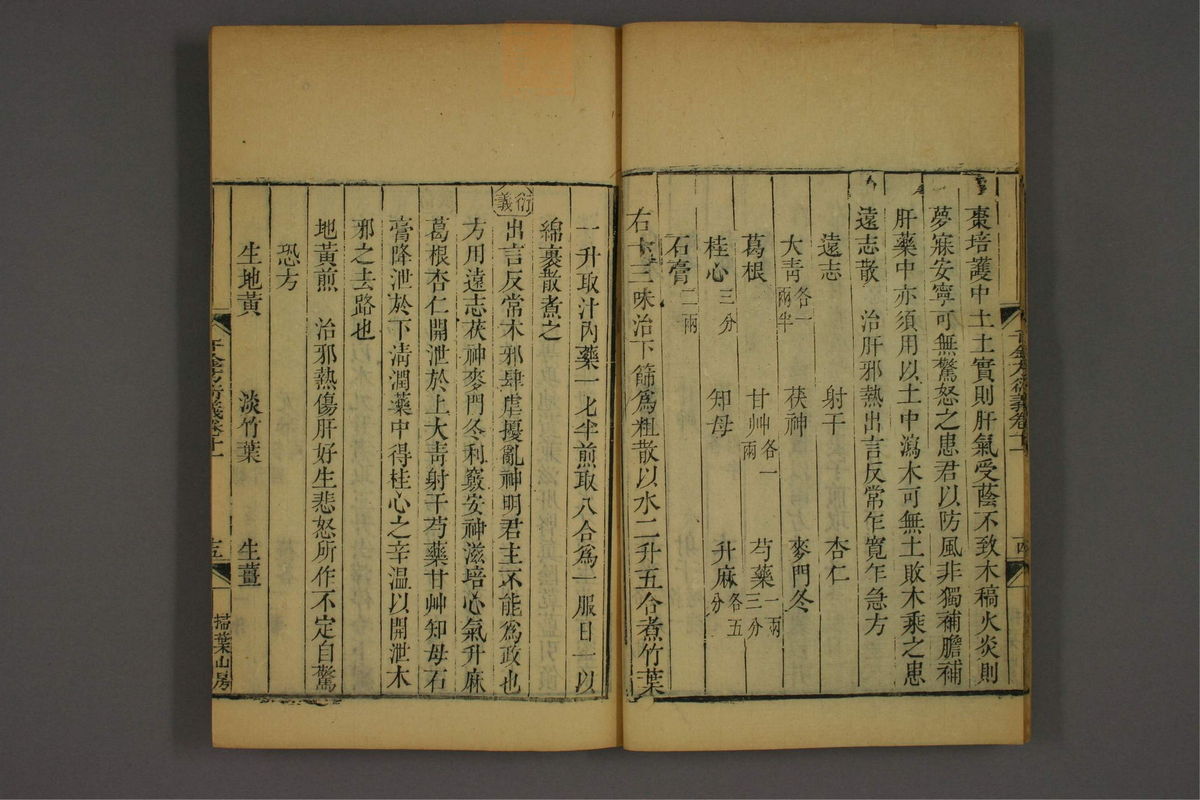 棗培護中土土實則肝氣受蔭不致木稿火炎則
夢寐安寧可無驚怒之患君以防風非獨補膽補
肝藥中亦須用以土中瀉木可無土敗木乘之患
遠志散　治肝邪熱出言反常乍寬乍急方
遠志　射干　杏仁
大靑各一兩半　茯神　麥門冬
葛根　甘艸各一兩　芍藥一兩三分
桂心三分　知母　升麻各五分
石膏二兩
右十三味治下篩爲粗散以水二升五合煮竹葉
一升取汁內藥一匕半煎取八合爲一服日一以
綿裹散煮之
衍義
出言反常木邪肆虐擾亂神明君主不能爲政也
方用遠志茯神麥門冬利竅安神滋培心氣升麻
葛根杏仁開泄於上大靑射干芍藥甘艸知母石
膏降泄於下淸潤藥中得桂心之辛温以開泄木
邪之去路也
地黃煎　治邪熱傷肝好生悲怒所作不定自驚
恐方
生地黃　淡竹葉　生薑
千金方衍義卷十一
掃葉山房